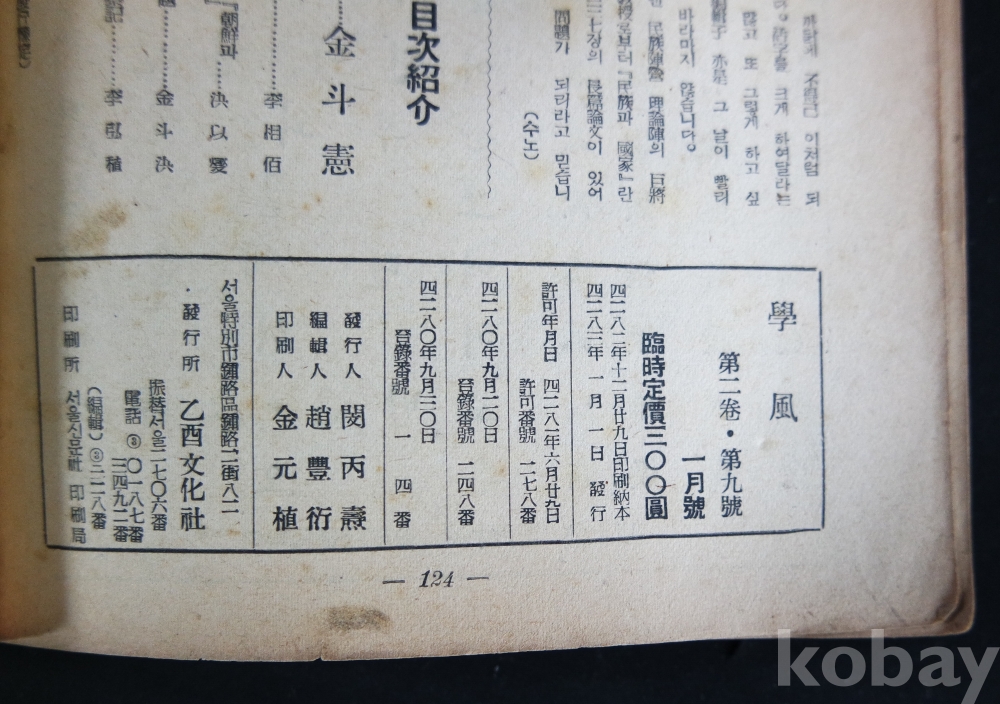 까닭에 不得己 이처럼 되
하여달라는
많고 또 그렇게 하고 싶
그 날이 빨리
바라마지 않습니다。
民族陣營 理論陣의 巨將
敎授로부터『民族과 國家』란
三七장의 長篇論文이 있어
問題가 되리라고 믿습니
(수노)
目次紹介
金斗憲
李相佰
『朝鮮과
金斗
學風
第二卷・第九號
一月號
臨時定價三〇〇圓
四二八二年十二月廿九日印刷納本
四二八三年一月一日發行
許可年月日 四二八一年六月廿九日
許可番號 二七八
四二八〇年九月二〇日
登錄番號 二四八
四二八〇年九月三〇日
登錄番號 一四番
發行人 閔丙燾
編輯人 趙豐衍
印刷人 金元植
서울特別市鍾路區鍾路二街八二
發行所 乙酉文化社
振替서울二七〇六番
電話③〇一八七番
三四九二番
(編輯)③三二八番
印刷所 서울신문社 印刷局
— 124 —
kobay